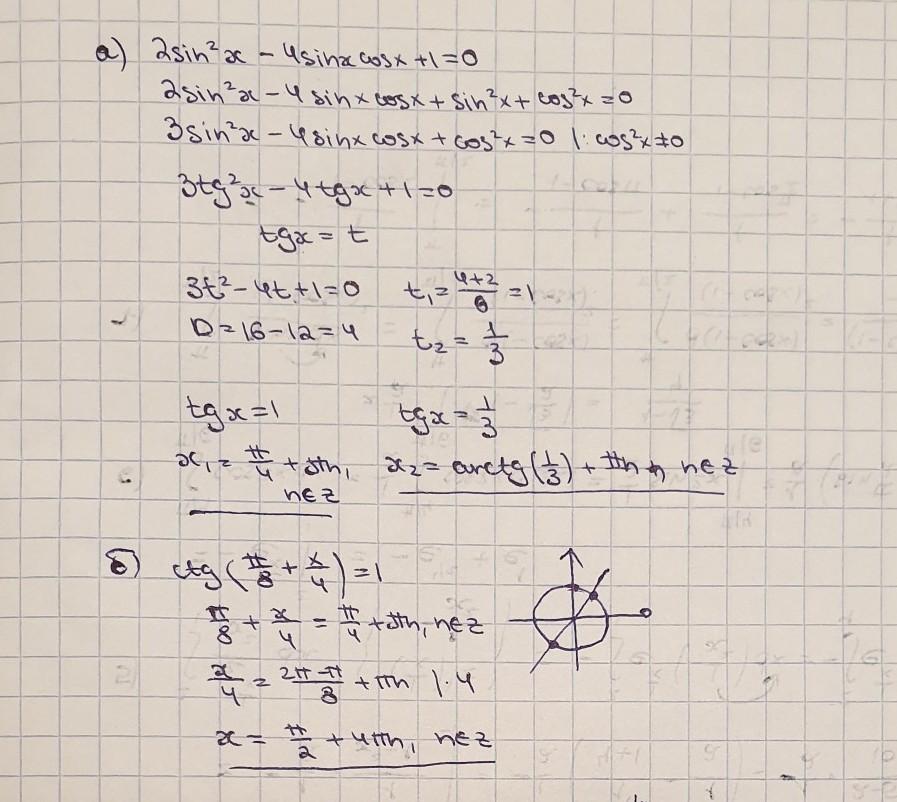 а) 2sin²x - 4sinx cosx + 1 = 0
2sin²x - 4 sinx cosx + sin²x + cos²x = 0
3sin²x - 4sinx cosx + cos²x = 0 |: cos²x ≠ 0
3tg²x - 4tgx + 1 = 0
tgx = t
3t² - 4t + 1 = 0 t₁ = (4+2)/6 = 1
D = 16 - 12 = 4 t₂ = 1/3
tgx = 1 tgx = 1/3
x₁ = π/4 + πn, n∈Z x₂ = arctg(1/3) + πn, n∈Z
б) ctg(π/8 + x/4) = 1
π/8 + x/4 = π/4 + πn, n∈Z
x/4 = (2π - π)/8 + πn |·4
x = π/2 + 4πn, n∈Z